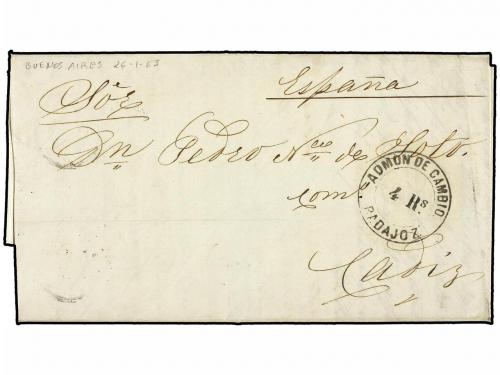 BUENOS AIRES 26-1-63
España
Sor
Dn Pedro Nces de Soto.
com.
ADMON DE CAMBIO
4 Rs.
BADAJOZ
Cadiz